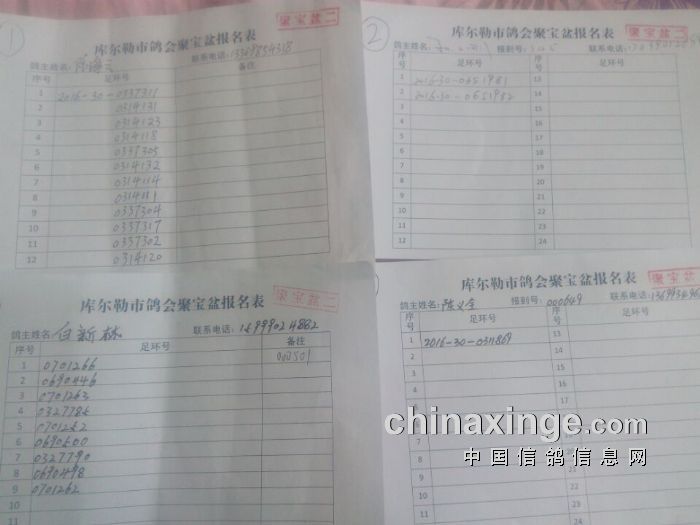 ①
聚宝盆二
库尔勒市鸽会聚宝盆报名表
鸽主姓名: 联系电话:
序号 足环号 备注
1 2016-30-0337311
2 0314131
3 0314123
4 0314118
5 0337305
6 0314132
7 0314114
8 0314111
9 0337304
10 0337317
11 0337302
12 0314120
②
聚宝盆二
库尔勒市鸽会聚宝盆报名表
鸽主姓名: 报到号: 联系电话:
序号 足环号 序号 足环号
1 2016-30-0651981 13
2 2016-30-0651982 14
3 15
4 16
5 17
6 18
7 19
8 20
9 21
10 22
11 23
12 24
聚宝盆二
库尔勒市鸽会聚宝盆报名表
鸽主姓名: 白新林 联系电话: 13699024882
序号 足环号 备注
1 0701266 000501
2 0690446
3 0701263
4
5
6 0690600
7 0327790
8 0690498
9 0701262
10
11
聚宝盆二
库尔勒市鸽会聚宝盆报名表
鸽主姓名: 陈义全 报到号: 000649 联系电话:
序号 足环号 序号 足环号
1 2016-30-0311869 13
2 14
3 15
4 16
5 17
6
7
8
9
10 22
11 23
12 24
chinaxinge.com
中国信鸽信息网